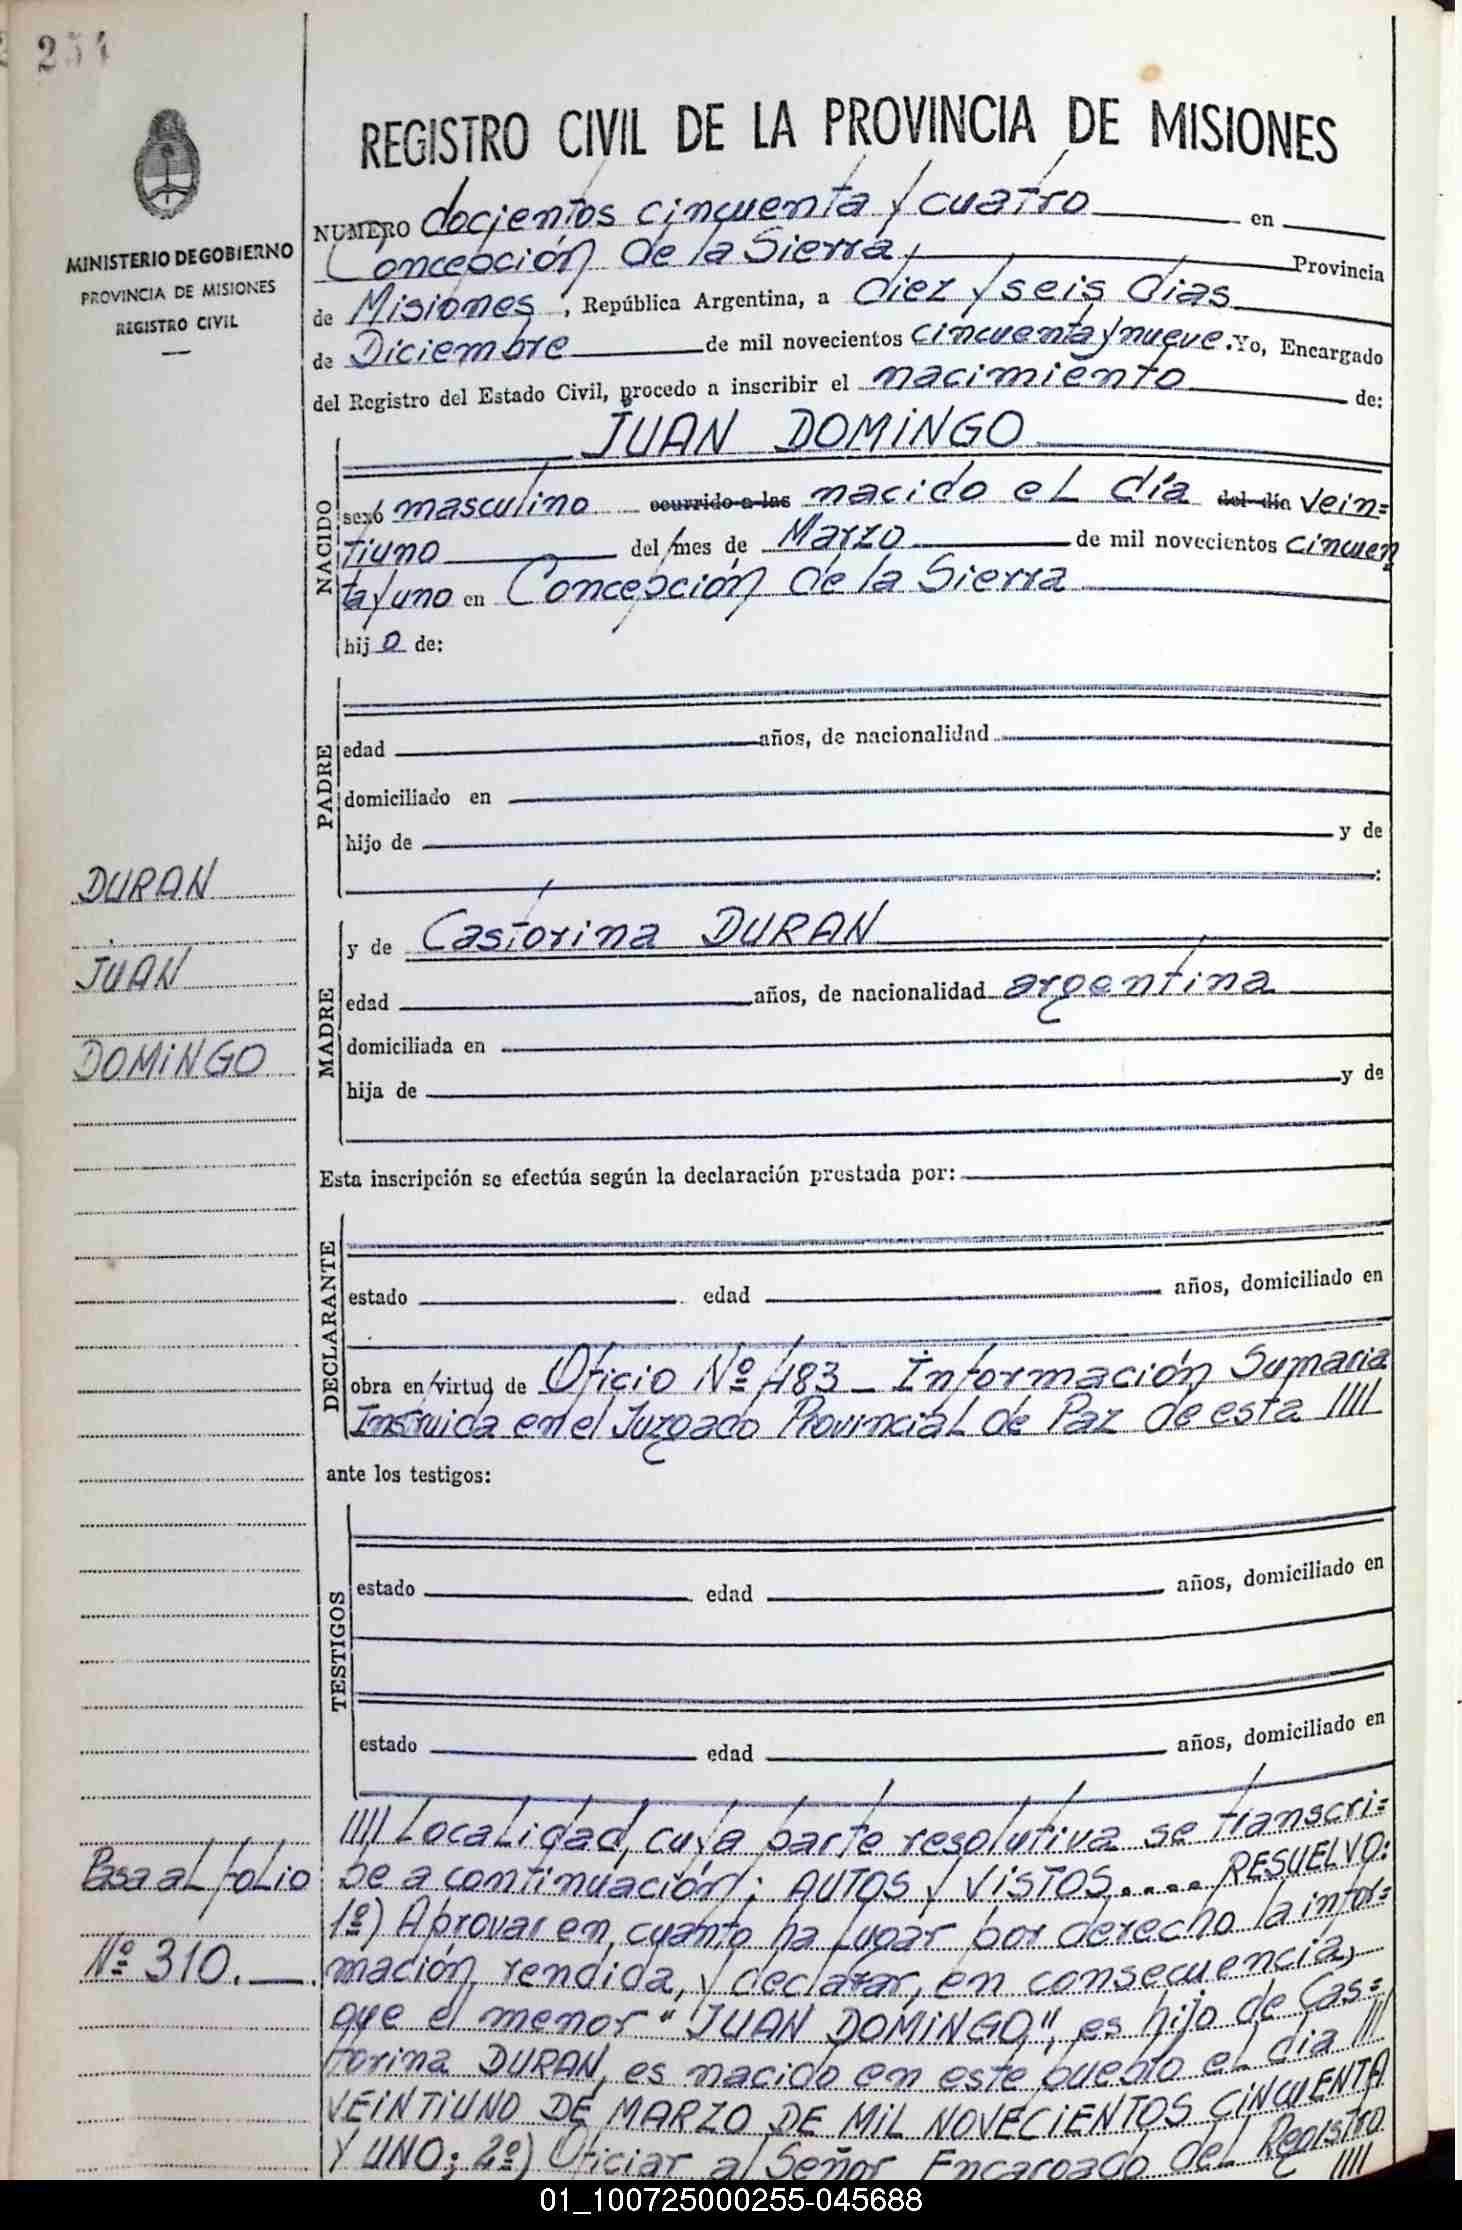 254
MINISTERIO DE GOBIERNO
PROVINCIA DE MISIONES
REGISTRO CIVIL
REGISTRO CIVIL DE LA PROVINCIA DE MISIONES
NUMERO docientos cincuenta y cuatro en
Concepción de la Sierra, Provincia
de Misiones, República Argentina, a diez y seis dias
de Diciembre de mil novecientos cincuenta y nueve. Yo, Encargado
del Registro del Estado Civil, procedo a inscribir el nacimiento de:
JUAN DOMINGO
NACIDO
sexo masculino ocurrido a las nacido el día del día vein=
tiuno del mes de Marzo de mil novecientos cincuen
ta y uno en Concepción de la Sierra
hijo de:
PADRE
edad años, de nacionalidad
domiciliado en
hijo de y de
:
DURAN
JUAN
DOMINGO
MADRE
y de Castorina DURAN
edad años, de nacionalidad argentina
domiciliada en
hija de y de
Esta inscripción se efectúa según la declaración prestada por:
DECLARANTE
estado edad años, domiciliado en
obra en virtud de Oficio Nº 483 - Información Sumaria
Instruida en el Juzgado Provincial de Paz de esta ////
ante los testigos:
TESTIGOS
estado edad años, domiciliado en
estado edad años, domiciliado en
Pasa al folio
Nº 310.
//// Localidad, cuya parte resolutiva se transcri=
be a continuación: AUTOS y VISTOS..... RESUELVO:
1º) Aprovar en cuanto ha lugar por derecho la infor=
mación rendida, y declarar, en consecuencia,
que el menor "JUAN DOMINGO", es hijo de Cas=
torina DURAN, es nacido en este pueblo el dia ///
VEINTIUNO DE MARZO DE MIL NOVECIENTOS CINCUENTA
Y UNO; 2º) Oficiar al Señor Encargado del Registro
////
01_100725000255-045688